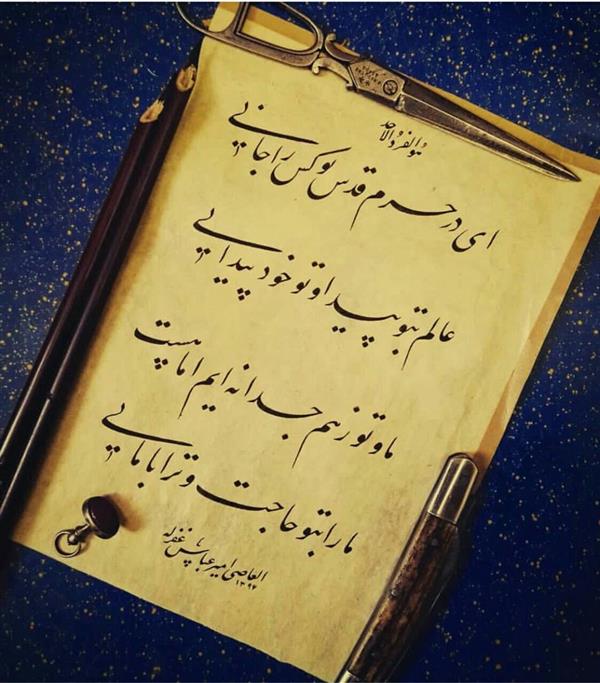 هو الفرد الاحد
ای در حرم قدس تو کس را جا نی
عالم بتو پیدا و تو خود پیدا نی
ما و تو ز هم جدا نه ایم اما هست
ما را بتو حاجت و ترا با ما نی
العاصی امیر عباس غفرله